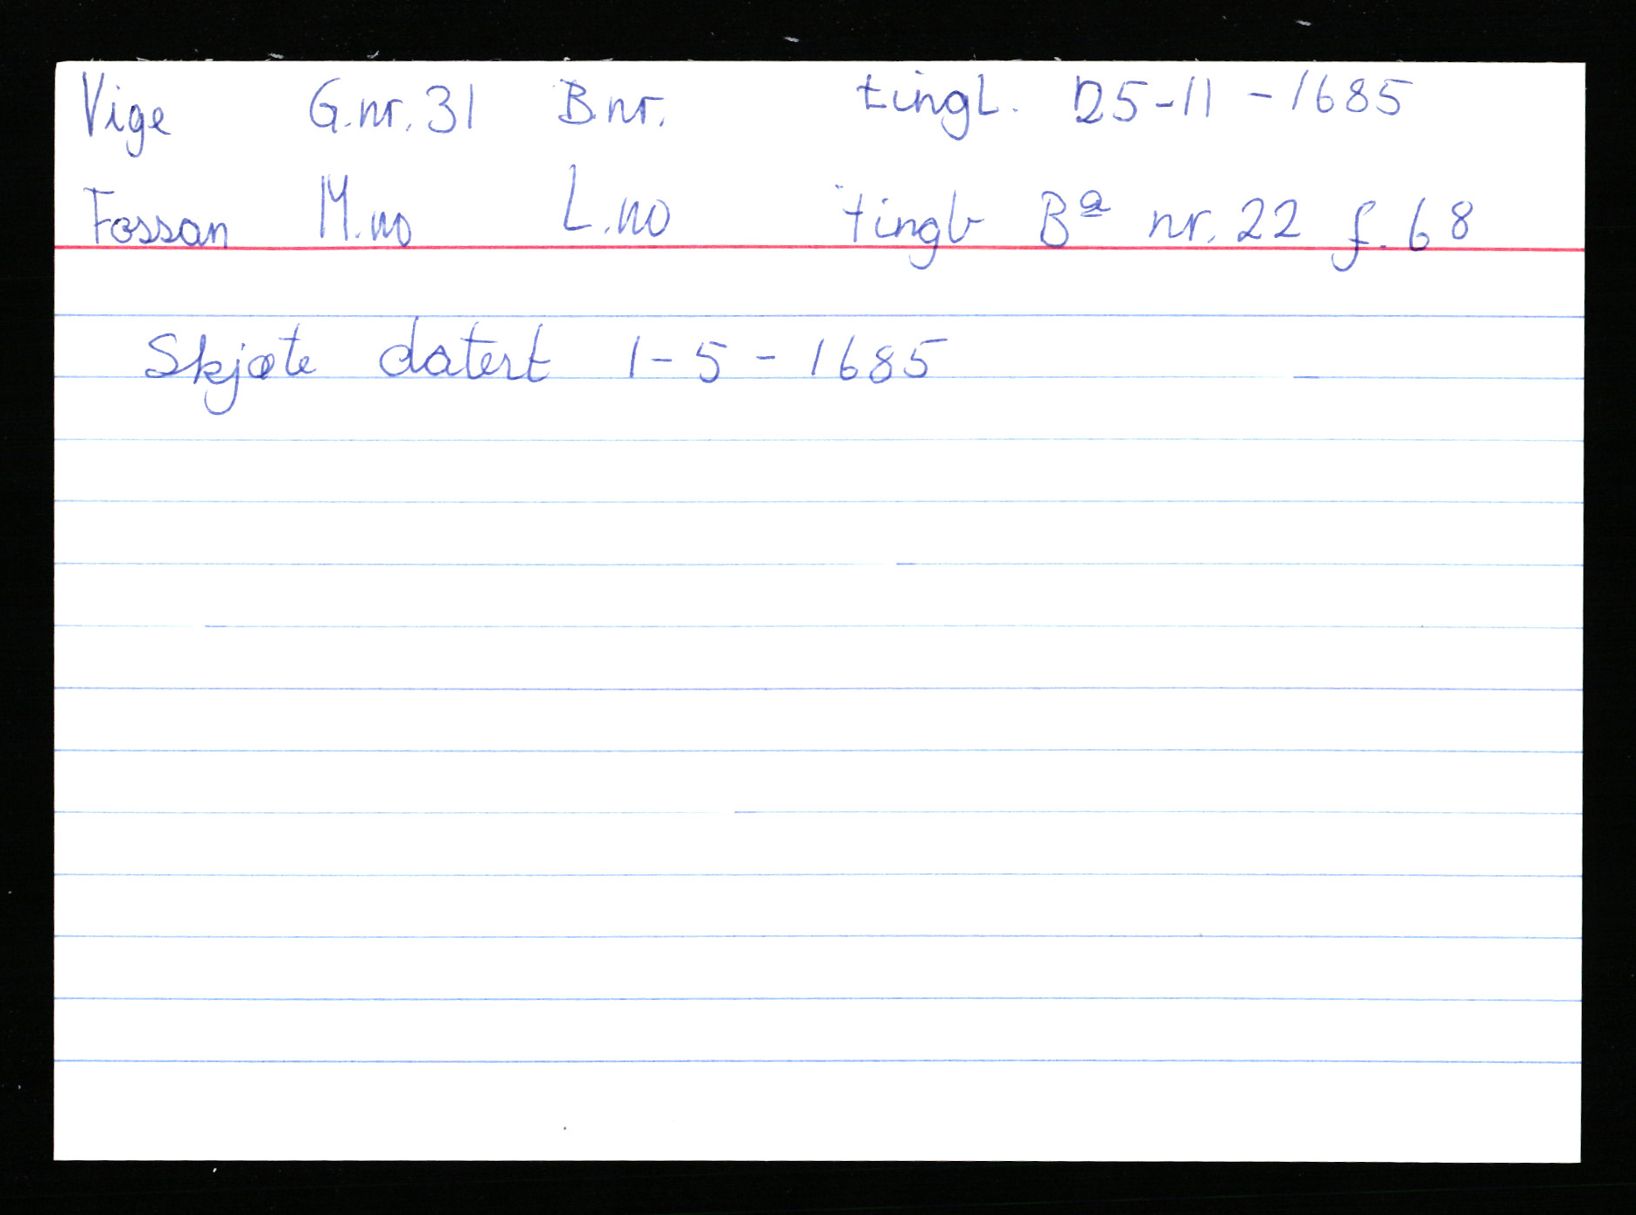 Vige G.nr. 31 B.nr. tingl. 25-11-1685
Fossan M.no L.no tingb Bª nr. 22 f. 68
Skjøte datert 1-5-1685